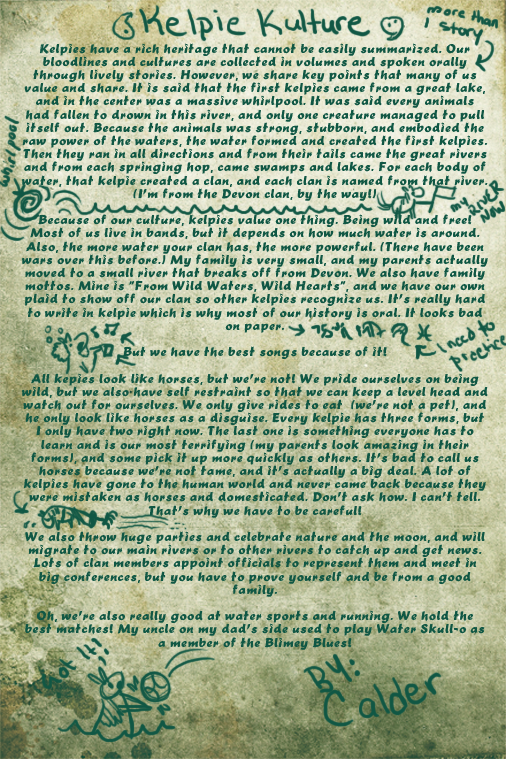 Kelpie Kulture
more than
1 story
Kelpies have a rich heritage that cannot be easily summarized. Our
bloodlines and cultures are collected in volumes and spoken orally
through lively stories. However, we share key points that many of us
value and share. It is said that the first kelpies came from a great lake,
and in the center was a massive whirlpool. It was said every animals
had fallen to drown in this river, and only one creature managed to pull
itself out. Because the animals was strong, stubborn, and embodied the
raw power of the waters, the water formed and created the first kelpies.
Then they ran in all directions and from their tails came the great rivers
and from each springing hop, came swamps and lakes. For each body of
water, that kelpie created a clan, and each clan is named from that river.
(I'm from the Devon clan, by the way!)
whirlpool
my RIVER
NOW
Because of our culture, kelpies value one thing. Being wild and free!
Most of us live in bands, but it depends on how much water is around.
Also, the more water your clan has, the more powerful. (There have been
wars over this before.) My family is very small, and my parents actually
moved to a small river that breaks off from Devon. We also have family
mottos. Mine is "From Wild Waters, Wild Hearts", and we have our own
plaid to show off our clan so other kelpies recognize us. It's really hard
to write in kelpie which is why most of our history is oral. It looks bad
on paper.
I need to
practice
But we have the best songs because of it!
All kepies look like horses, but we're not! We pride ourselves on being
wild, but we also have self restraint so that we can keep a level head and
watch out for ourselves. We only give rides to eat (we're not a pet), and
he only look like horses as a disguise. Every Kelpie has three forms, but
I only have two right now. The last one is something everyone has to
learn and is our most terrifying (my parents look amazing in their
forms), and some pick it up more quickly as others. It's bad to call us
horses because we're not tame, and it's actually a big deal. A lot of
kelpies have gone to the human world and never came back because they
were mistaken as horses and domesticated. Don't ask how. I can't tell.
That's why we have to be careful!
We also throw huge parties and celebrate nature and the moon, and will
migrate to our main rivers or to other rivers to catch up and get news.
Lots of clan members appoint officials to represent them and meet in
big conferences, but you have to prove yourself and be from a good
family.
Oh, we're also really good at water sports and running. We hold the
best matches! My uncle on my dad's side used to play Water Skull-o as
a member of the Blimey Blues!
Got It!
By:
Calder